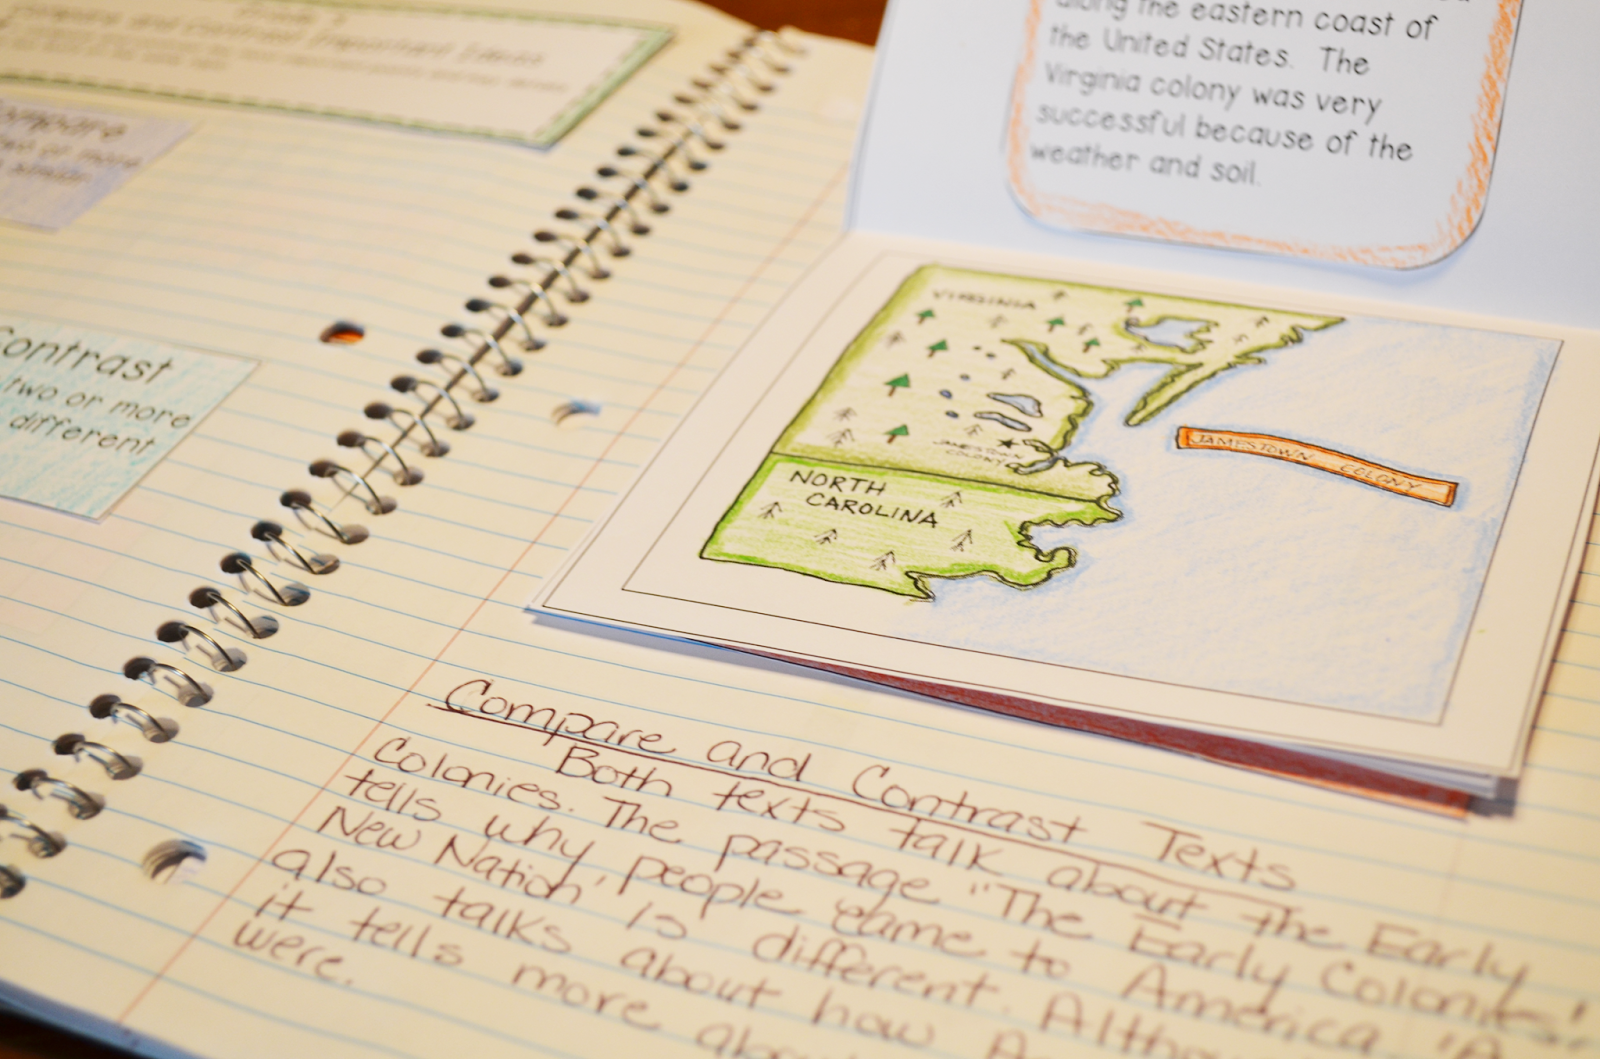 Compare and Contrast Important Ideas
Compare
two or more
Contrast
two or more
different
along the eastern coast of
the United States. The
Virginia colony was very
successful because of the
weather and soil.
VIRGINIA
JAMESTOWN
COLONY
NORTH
CAROLINA
JAMESTOWN COLONY
Compare and Contrast Texts
Both texts talk about the Early
Colonies. The passage "The Early Colonies"
tells why people came to America. "A
New Nation" is different. Although
also talks about how
it tells more
were.